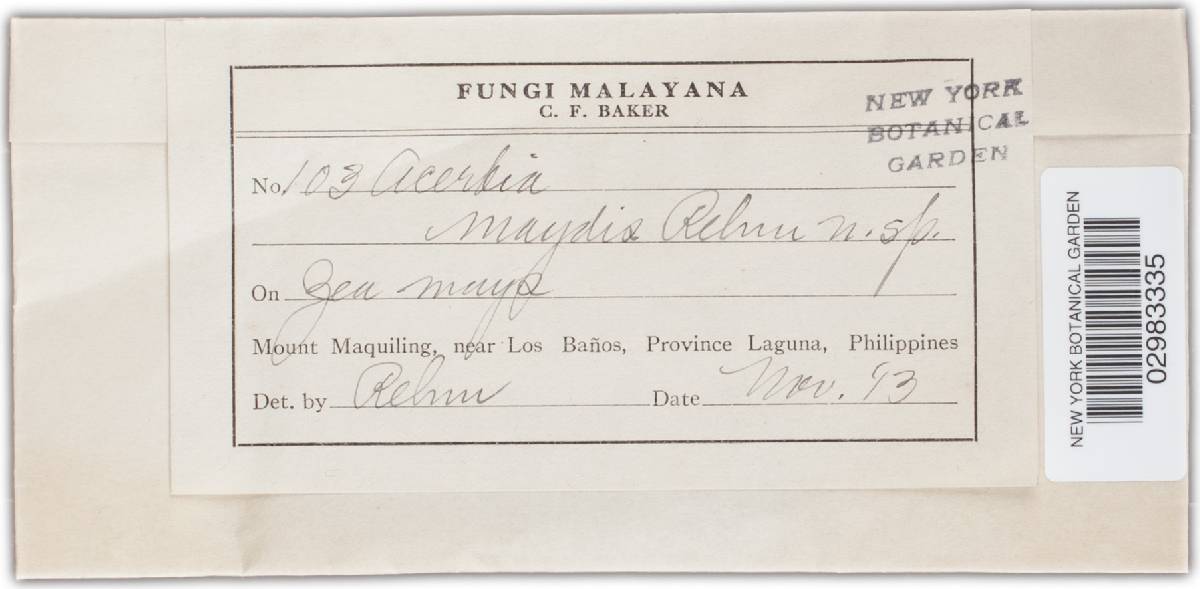 FUNGI MALAYANA
C. F. BAKER
NEW YORK
BOTANICAL
GARDEN
No. 103 Acerbia
Maydis Rehm n. sp.
On Zea mays
Mount Maquiling, near Los Baños, Province Laguna, Philippines
Det. by Rehm Date Nov. '13
NEW YORK BOTANICAL GARDEN
02983335